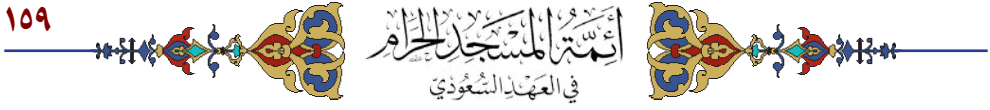 ١٥٩
أَئِمَّةُ المَسْجِدِ الحَرَامِ
فِي العَهْدِ السُّعُودِيّ